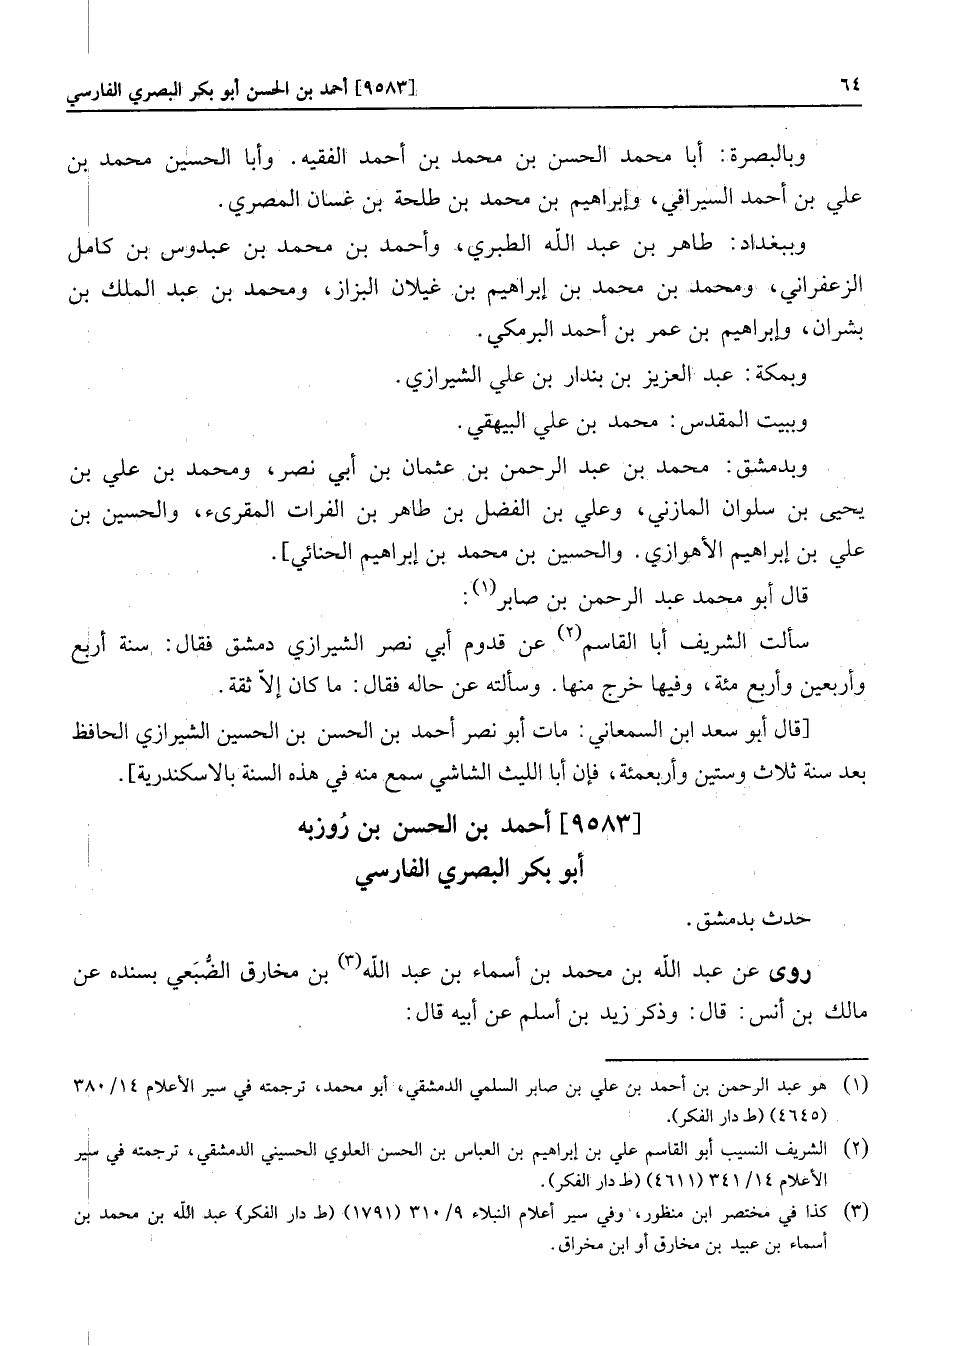 ٦٤
[٩٥٨٣] أحمد بن الحسن أبو بكر البصري الفارسي
وبالبصرة: أبا محمد الحسن بن محمد بن أحمد الفقيه. وأبا الحسين محمد بن
علي بن أحمد السيرافي، وإبراهيم بن محمد بن طلحة بن غسان المصري.
وببغداد: طاهر بن عبد الله الطبري، وأحمد بن محمد بن عبدوس بن كامل
الزعفراني، ومحمد بن محمد بن إبراهيم بن غيلان البزاز، ومحمد بن عبد الملك بن
بشران، وإبراهيم بن عمر بن أحمد البرمكي.
وبمكة: عبد العزيز بن بندار بن علي الشيرازي.
وببيت المقدس: محمد بن علي البيهقي.
وبدمشق: محمد بن عبد الرحمن بن عثمان بن أبي نصر، ومحمد بن علي بن
يحيى بن سلوان المازني، وعلي بن الفضل بن طاهر بن الفرات المقرىء، والحسين بن
علي بن إبراهيم الأهوازي. والحسين بن محمد بن إبراهيم الحنائي].
قال أبو محمد عبد الرحمن بن صابر(١):
سألت الشريف أبا القاسم(٢) عن قدوم أبي نصر الشيرازي دمشق فقال: سنة أربع
وأربعين وأربع مئة، وفيها خرج منها. وسألته عن حاله فقال: ما كان إلاّ ثقة.
[قال أبو سعد ابن السمعاني: مات أبو نصر أحمد بن الحسن بن الحسين الشيرازي الحافظ
بعد سنة ثلاث وستين وأربعمئة، فإن أبا الليث الشاشي سمع منه في هذه السنة بالاسكندرية].
[٩٥٨٣] أحمد بن الحسن بن رُوزبه
أبو بكر البصري الفارسي
حدث بدمشق.
روى عن عبد الله بن محمد بن أسماء بن عبد الله(٣) بن مخارق الضُّبَعي بسنده عن
مالك بن أنس: قال: وذكر زيد بن أسلم عن أبيه قال:
(١) هو عبد الرحمن بن أحمد بن علي بن صابر السلمي الدمشقي، أبو محمد، ترجمته في سير الأعلام ١٤/ ٣٨٠
(٤٦٤٥) (ط دار الفكر).
(٢) الشريف النسيب أبو القاسم علي بن إبراهيم بن العباس بن الحسن العلوي الحسيني الدمشقي، ترجمته في سير
الأعلام ١٤/ ٣٤١ (٤٦١١) (ط دار الفكر).
(٣) كذا في مختصر ابن منظور، وفي سير أعلام النبلاء ٩/ ٣١٠ (١٧٩١) (ط دار الفكر) عبد الله بن محمد بن
أسماء بن عبيد بن مخارق أو ابن مخراق.